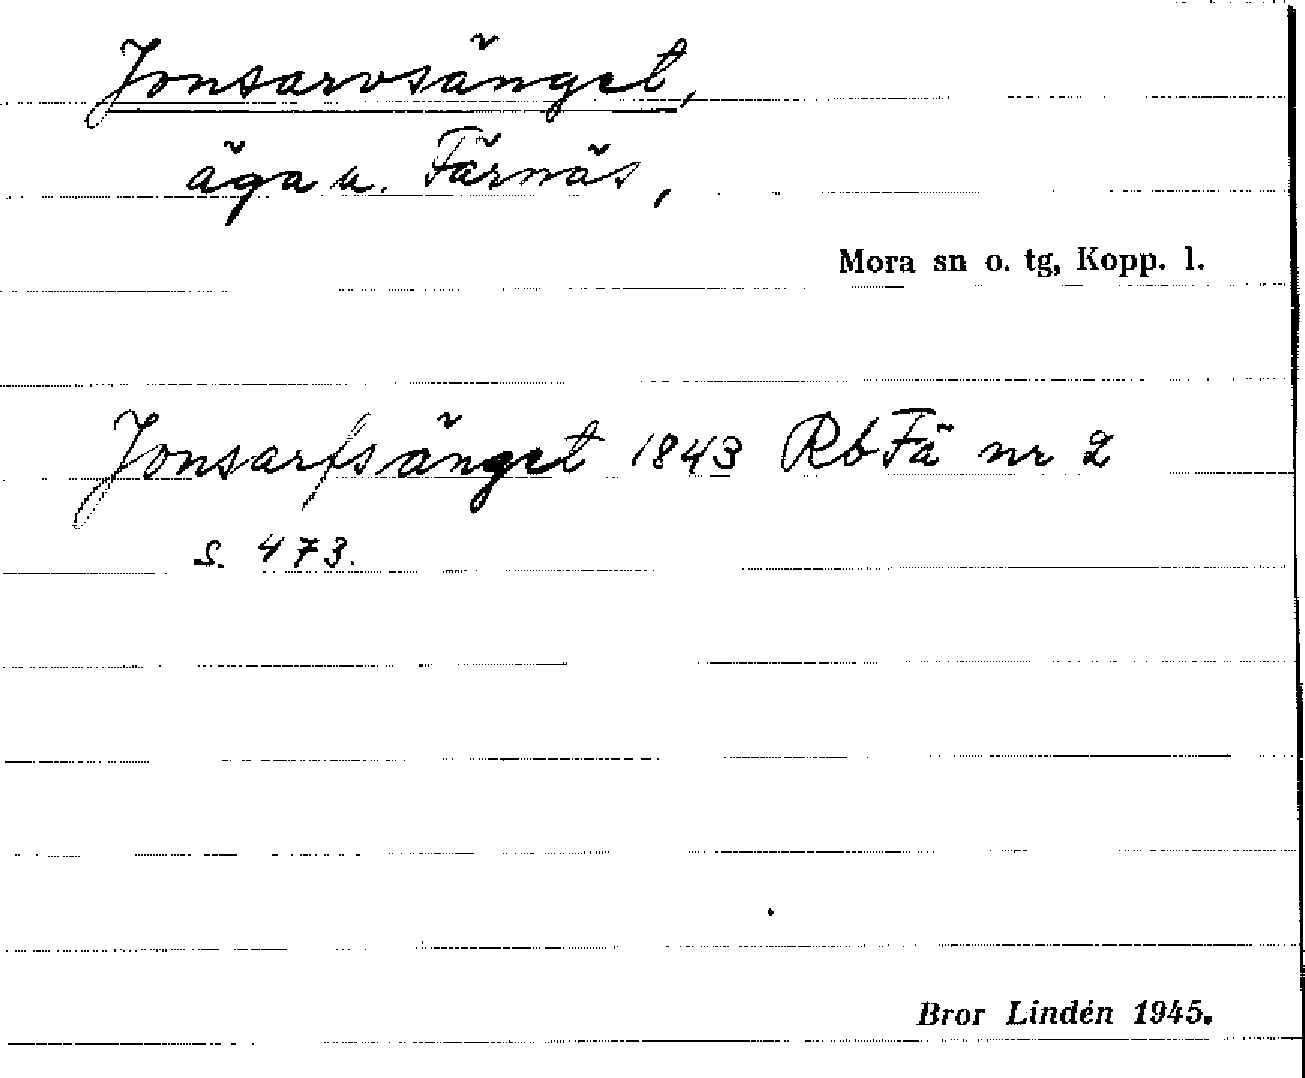 Jonsarvsänget,
äga u. Färnäs,
Mora sn o. tg, Kopp. l.
Jonsarfsänget 1843 RbFä nr 2
s. 473.
Bror Lindén 1945.